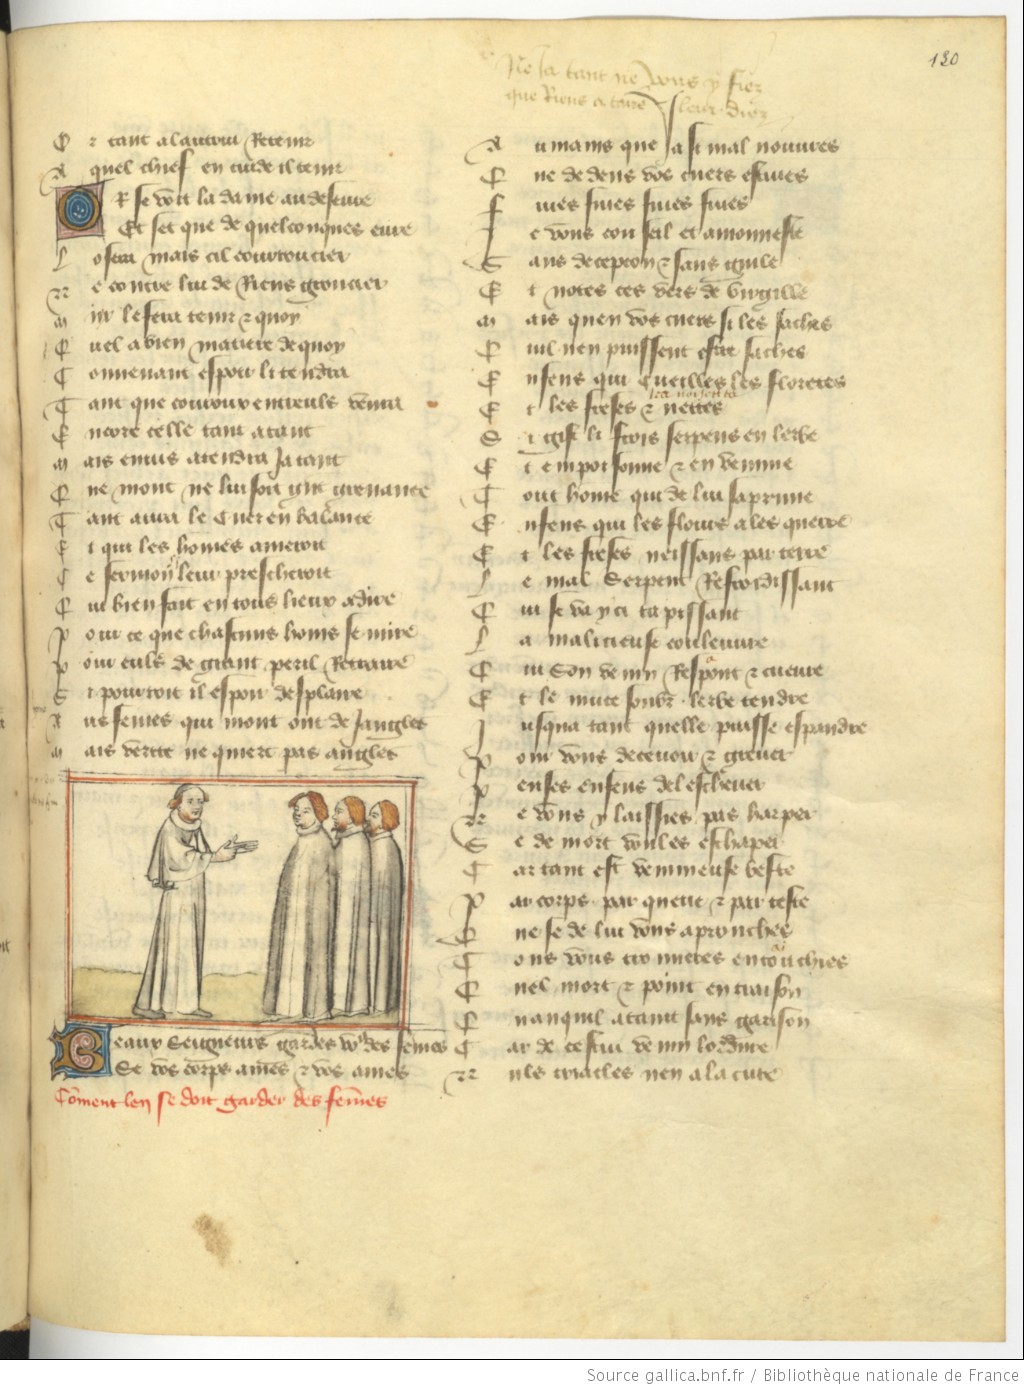 130
Ne ja tant ne vous y fier
que Riens a taire
O r tant alautrui Retenir
A quel chief en cuide il tenir
OR se voit la dame au deseure
Et set que de quelconques eure
L osera mais cil courroucier
N e contre lui de Riens groucier
M ir le fera tenir z quoy
E uel a bien matiere de quoy
C onnenant espoir li tendra
T ant que couroux entreuls vanra
E ncore celle tant atant
M ais entus atendra ja tant
E ne mont ne lui soit gnt grenance
T ant aura le cuer en balance
E t qui les homes ameroit
C e sermon leur prescheroit
E ui bien fait en tous lieux a dire
P our ce que chascuns homs se mire
P our euls de grant peril Retraire
S i pourroit il espoir desplaire
A us femes qui mont ont de jangles
M ais verite ne quiert pas angles
Beaux seigneurs gardes vo9 des femes
Se vos corps ames z vos ames
Coment len se doit garder des femes
A u mains que ja si mal nouures
E ne dedens vos cuers escuures
F uies fuies fuies fuies
J e vous conseil et amonneste
S ans decepcon z sans guile
E t notes ces vers de virgille
M ais quen vos cuers si les saches
E uil nen puissent estre saches
E nfens qui cueilles les floretes
E t les freses z nettes
S i gist li frois serpens en lerbe
E t empoisonne z en venime
T out home qui de lui saprime
E nfens qui les flours ales querre
E t les freses neissans par terre
L e mal Serpent Refroidissant
E ui se va yci tapissant
L a malicieuse couleuure
E ui son venin Respont z cueure
E t le muce soubz lerbe tendre
J usqua tant quelle puisse espandre
P our vous deceuoir z greuer
P enses enfens del escheuer
N e vous y laissies pas harper
S e de mort voules eschaper
C ar tant est venimeuse beste
P ar corps par queue z par teste
E ne se de lui vous aprouches
T ous vous trouueres entouchies
E uel mort z point en traison
E uanquil ataint sans garison
C ar de cestui venin lordure
N uls triacles nen a la cure
Source gallica.bnf.fr / Bibliothèque nationale de France